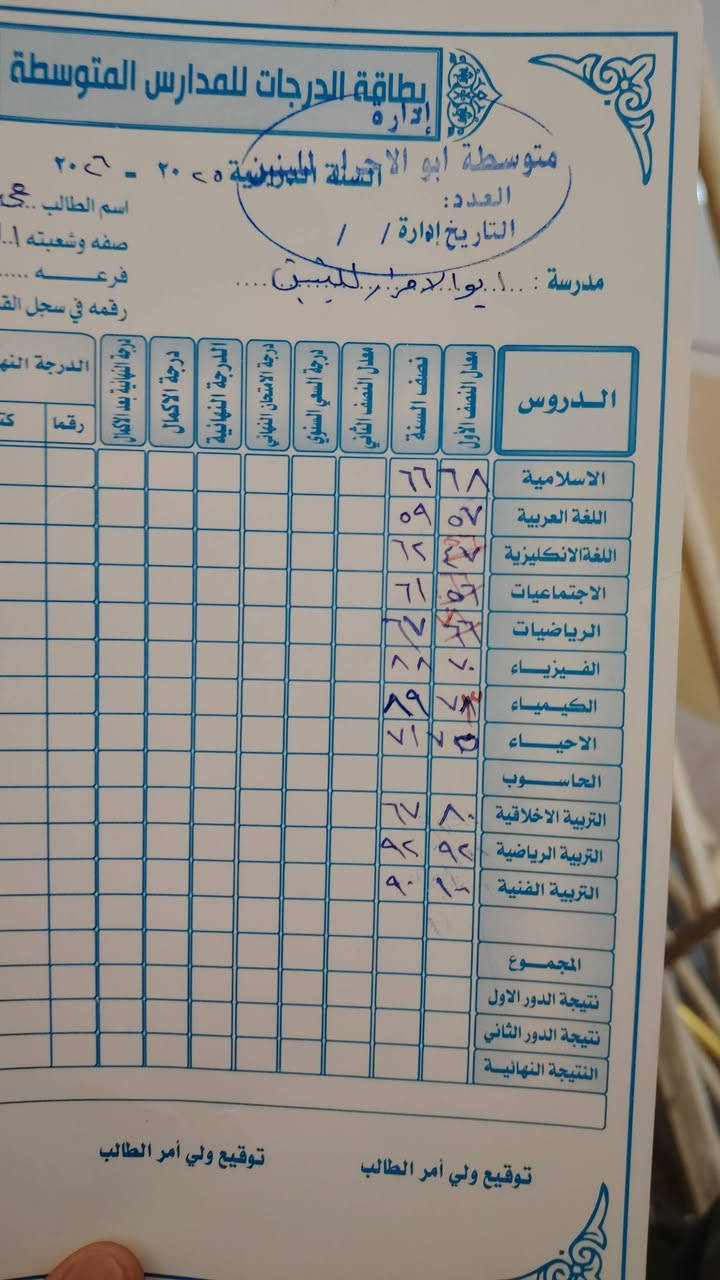 بطاقة الدرجات للمدارس المتوسطة
إدارة
متوسطة ابو الاحرار للبنين
السنة الدراسية ٢٠٢٥ - ٢٠٢٦
العدد:
التاريخ / /
إدارة
اسم الطالب
صفه وشعبته
فرعه
رقمه في سجل
مدرسة : ابو الاحرار للبنين
الدروس معدل النصف الأول نصف السنة معدل النصف الثاني درجة السعي السنوي درجة الامتحان النهائي الدرجة النهائية درجة الاكمال درجة النهائية بعد الاكمال الدرجة
رقما
الاسلامية ٦٨ ٦٦
اللغة العربية ٥٧ ٥٩
اللغة الانكليزية ٦٢
الاجتماعيات ٥٦ ٦١
الرياضيات
الفيزياء ٧٠
الكيمياء ٨٩
الاحياء ٧٥ ٧١
الحاسوب
التربية الاخلاقية ٨٠ ٦٧
التربية الرياضية ٩٢ ٩٢
التربية الفنية ٩٠
المجموع
نتيجة الدور الاول
نتيجة الدور الثاني
النتيجة النهائية
توقيع ولي أمر الطالب توقيع ولي أمر الطالب